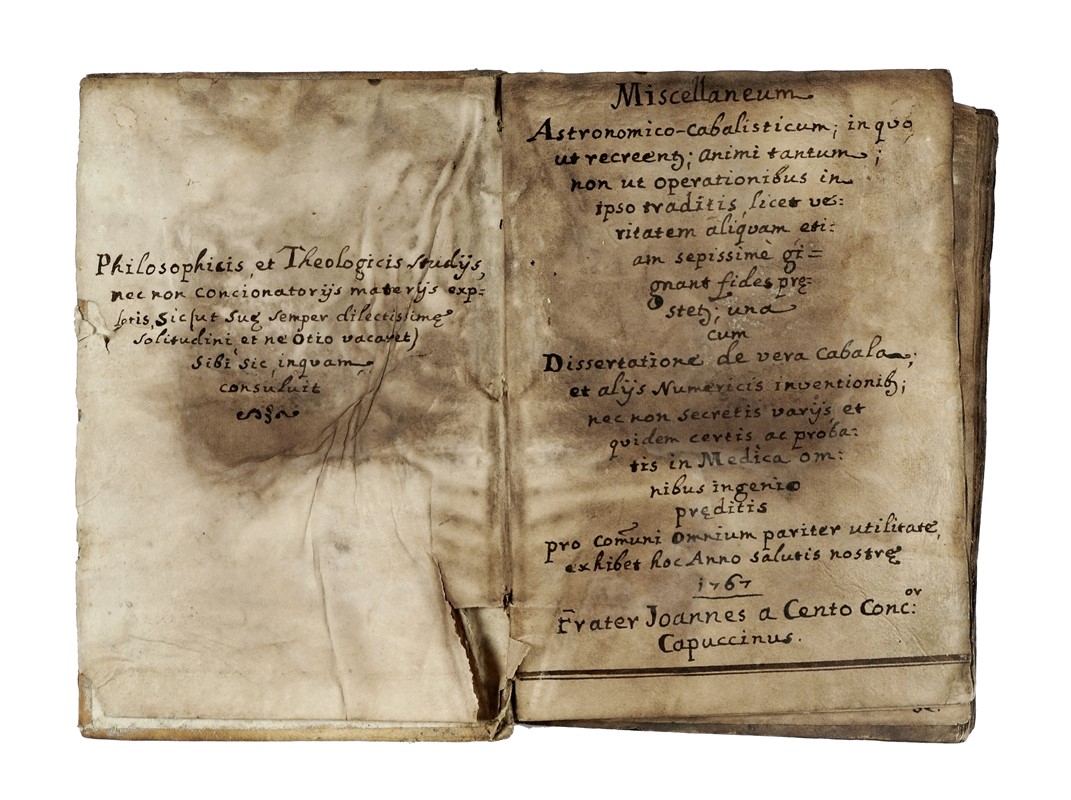 Philosophicis, et Theologicis studijs,
nec non concionatorijs materijs exp=
letis, sic (ut suę semper dilectissimę
solitudini, et ne otio vacaret)
sibi sic, inquam,
consuluit
Miscellaneum
Astronomico-Cabalisticum; in quo,
ut recreentꝫ; animi tantum;
non ut operationibus in
ipso traditis, licet ve:
ritatem aliquam eti:
am sepissimè gi=
gnant fides prę:
stetꝫ; una
cum
Dissertatione de vera Cabala;
et alijs Numericis inventionibꝫ;
nec non secretis varijs, et
quidem certis ac proba:
tis in Medica om:
nibus ingenio
pręditis
pro com̃uni omnium pariter utilitate,
exhibet hoc Anno salutis nostrę
1767
Frater Joannes a Cento Conc:ᵒʳ
Capuccinus.